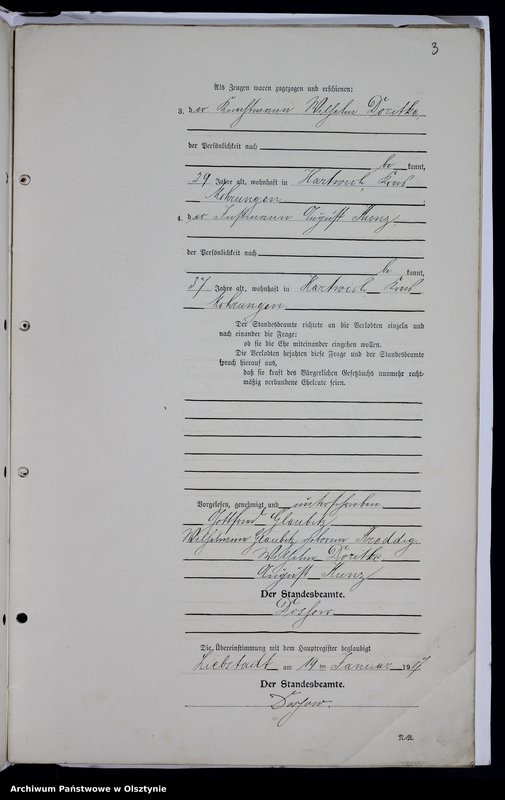 3
Als Zeugen waren zugezogen und erschienen:
3. der Wilhelm Doritke
der Persönlichkeit nach
be kannt,
39 Jahre alt, wohnhaft in Hartwich, Kreis
Mohrungen
4. der Instmann August Kunz,
der Persönlichkeit nach
be kannt,
37 Jahre alt, wohnhaft in Hartwich Kreis
Mohrungen
Der Standesbeamte richtete an die Verlobten einzeln und
nach einander die Frage:
ob sie die Ehe miteinander eingehen wollen.
Die Verlobten bejahten diese Frage und der Standesbeamte
sprach hierauf aus,
daß sie kraft des Bürgerlichen Gesetzbuchs nunmehr recht-
mäßig verbundene Eheleute seien.
Vorgelesen, genehmigt und unterschrieben
Gottfried Glaubitz
Wilhelmine Glaubitz geborene
Wilhelm Doritke
August Kunz
Der Standesbeamte.
Die Übereinstimmung mit dem Hauptregister beglaubigt
Liebstadt am 14 ten Januar 1917
Der Standesbeamte.
N.-N.
Archiwum Państwowe w Olsztynie